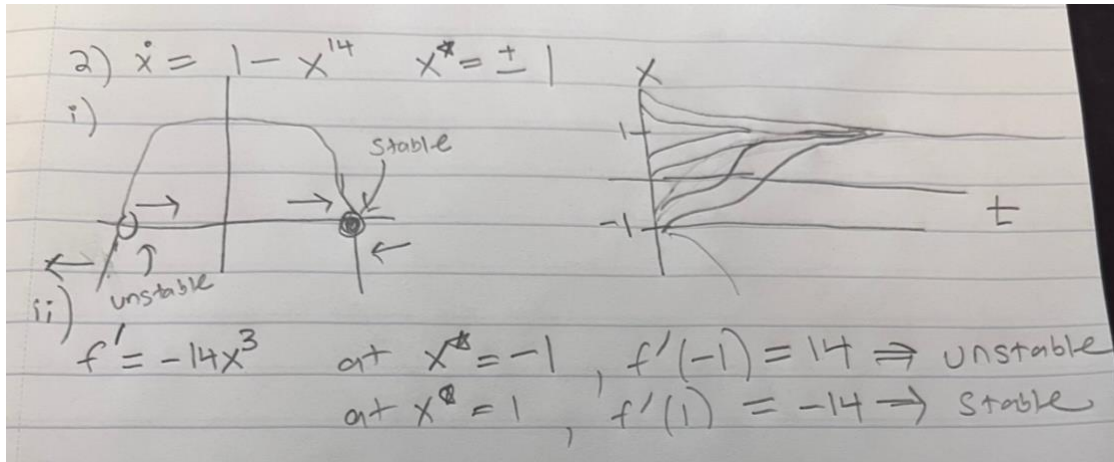 2) ẋ = 1 - x¹⁴    x* = ± 1
i)
stable
unstable
x
1
-1
t
ii)
f' = -14x³    at x* = -1, f'(-1) = 14 ⇒ unstable
at x* = 1, f'(1) = -14 → stable